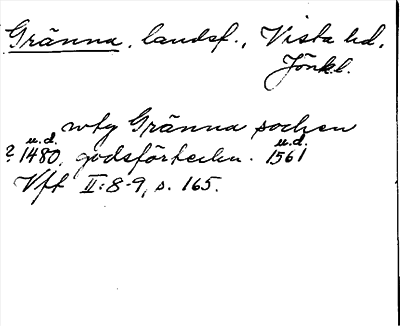 Gränna, landsf., Vista hd,
Jönk.l.
wtg Gränna socken
u.d. u.d.
? 1480, godsförteckn. 1561
Vft II:8-9, s. 165.